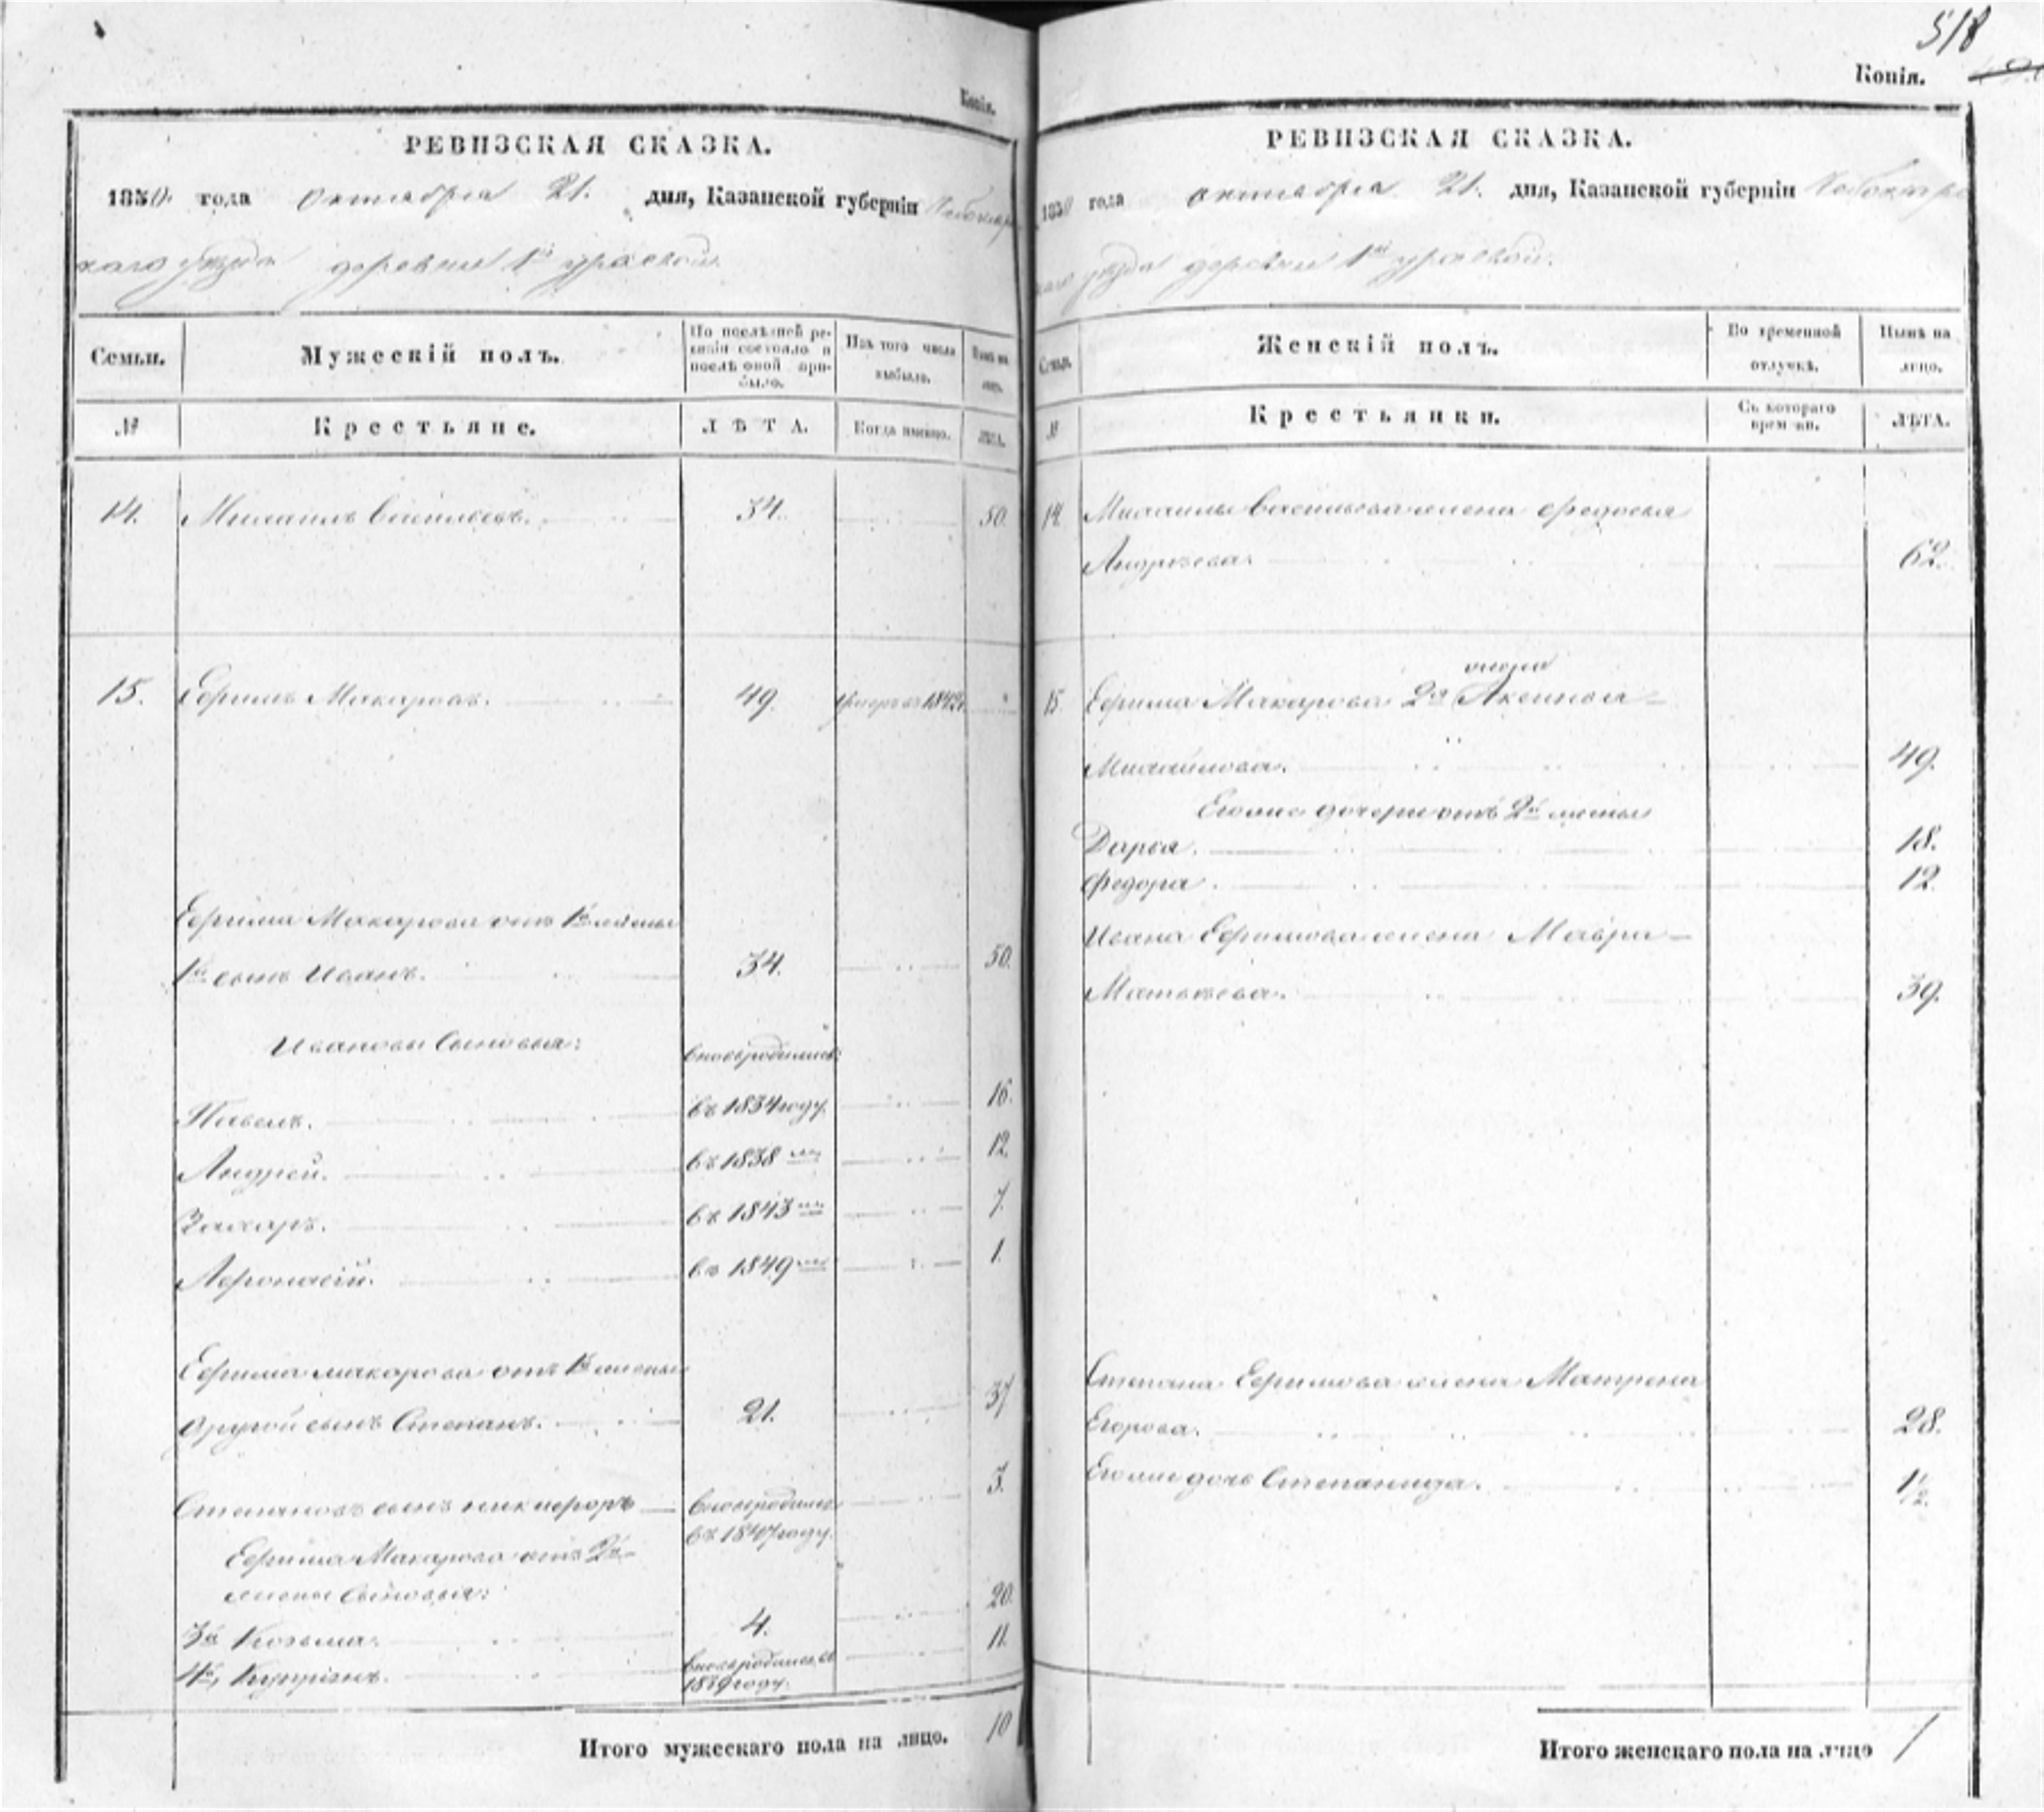 Копія.
РЕВИЗСКАЯ СКАЗКА.
1850 года октября 21. дня, Казанской губерніи
деревни 1й
Семьи.
Мужескій полъ.
По послѣдней ре-
визіи состояло и
послѣ оной при-
было.
Изъ того числа
выбыло.
Нынѣ на
лицо.
№
Крестьяне.
ЛѢТА.
Когда именно.
ЛѢТА.
14. Михаилъ Васильевъ. 34. 50.
15. Ефимъ Макаровъ. 49. умеръ въ 1842
Ефима Макарова отъ 1й жены
1й сынъ Иванъ. 34. 50.
Ивановы сыновья: вновь родились:
Павелъ. въ 1834 году. 16.
Андрей. въ 1838 12.
Захаръ. въ 1843 7.
Афонасій. въ 1849 1.
Ефима Макарова отъ 1й жены
другой сынъ Степанъ. 21. 37
Степановъ сынъ Никифоръ вновь родился 3.
въ 1847 году.
Ефима Макарова отъ 2й
жены сыновья:
3й Козьма. 4. 20.
4й Купріянъ. вновь родился въ 11.
1839 году.
Итого мужескаго пола на лицо. 10
518
Копія.
РЕВИЗСКАЯ СКАЗКА.
1850 года октября 21. дня, Казанской губерніи
уѣзда деревни 1й
Семьи.
Женскій полъ.
Во временной
отлучкѣ.
Нынѣ на
лицо.
№
Крестьянки.
Съ котораго
времени.
ЛѢТА.
14. Михаилы Васильева жена Федосья
Андреева. 62.
жена
15. Ефима Макарова 2я Аксинья
Михайлова. 49.
Его же дочери отъ 2й жены
Дарья. 18.
Федора. 12.
Ивана Ефимова жена Мавра
Матвѣева. 39.
Степана Ефимова жена Матрена
Егорова. 28.
Его же дочь Степанида. 1/2.
Итого женскаго пола на лицо 7